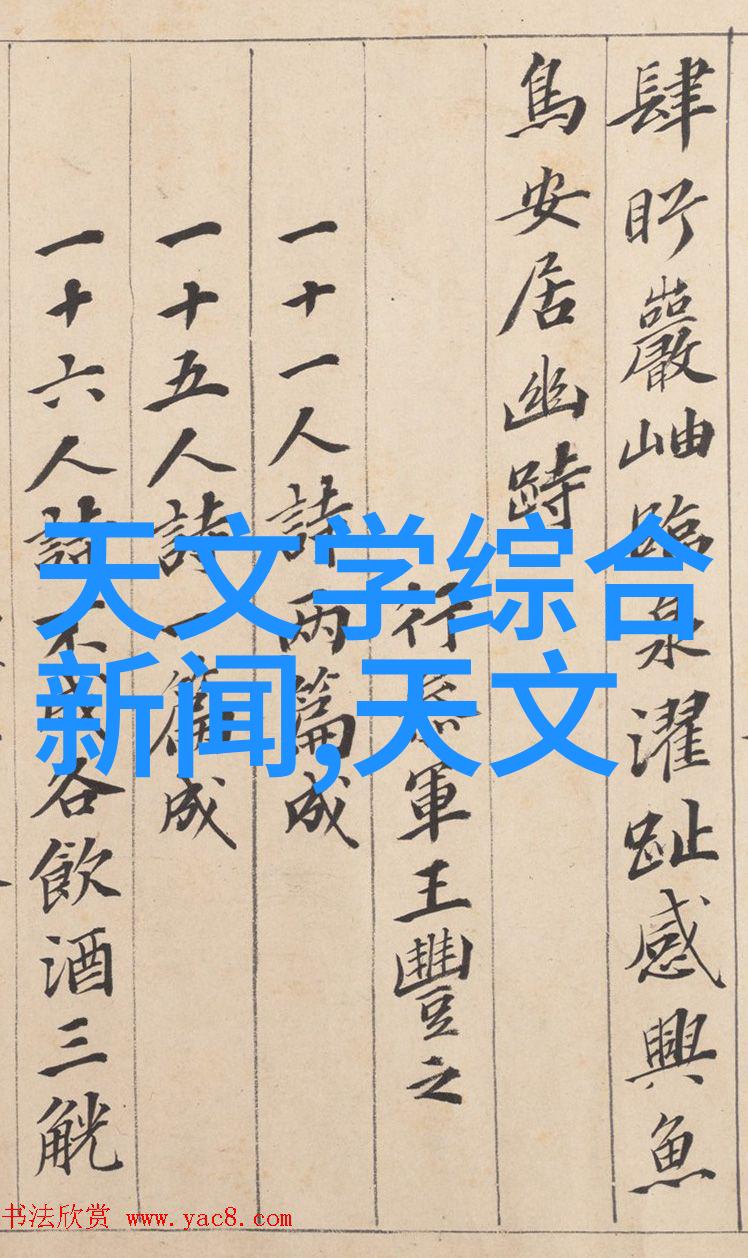 肆盻巖岫臨泉濯趾感興魚
鳥安居幽跱
行參軍王豐之
一十一人詩兩篇成
一十五人詩一篇成
一十六人詩不成各飲酒三觥
天文学综合
新闻,天文
书法欣赏 www.yac8.com